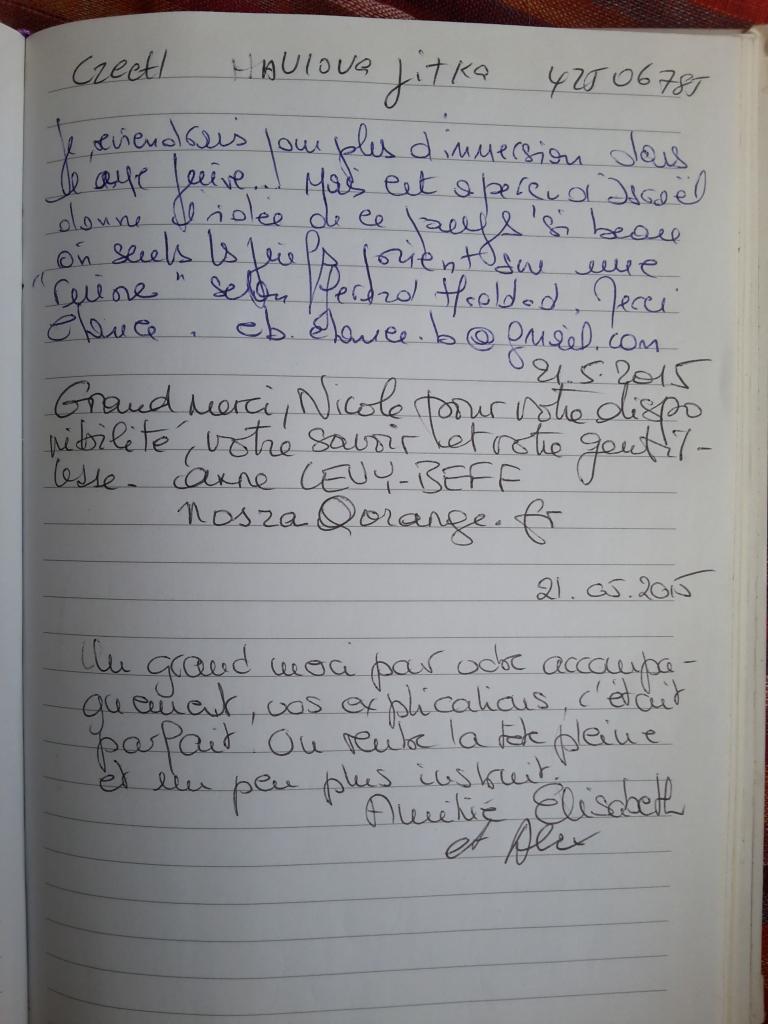 Czech HAVLOVA JITKA 425 06785
Je reviendrais pour plus d'immersion dans
le juive... Mais cet aperçu d'Israël
donne l'idée de ce pays si beau
où seuls les juifs sur une
" " selon Haddad. Merci
eb. @gmail.com
21.5.2015
Grand merci, Nicole pour votre dispo
nibilité, votre savoir et votre gentil-
lesse. Anne LEVY-BEFF
nosza@orange.fr
21.05.2015
Un grand merci par votre accompa-
gnement, vos explications, c'était
parfait. On rentre la tête pleine
et un peu plus instruit.
Amitié Elisabeth
et Alex